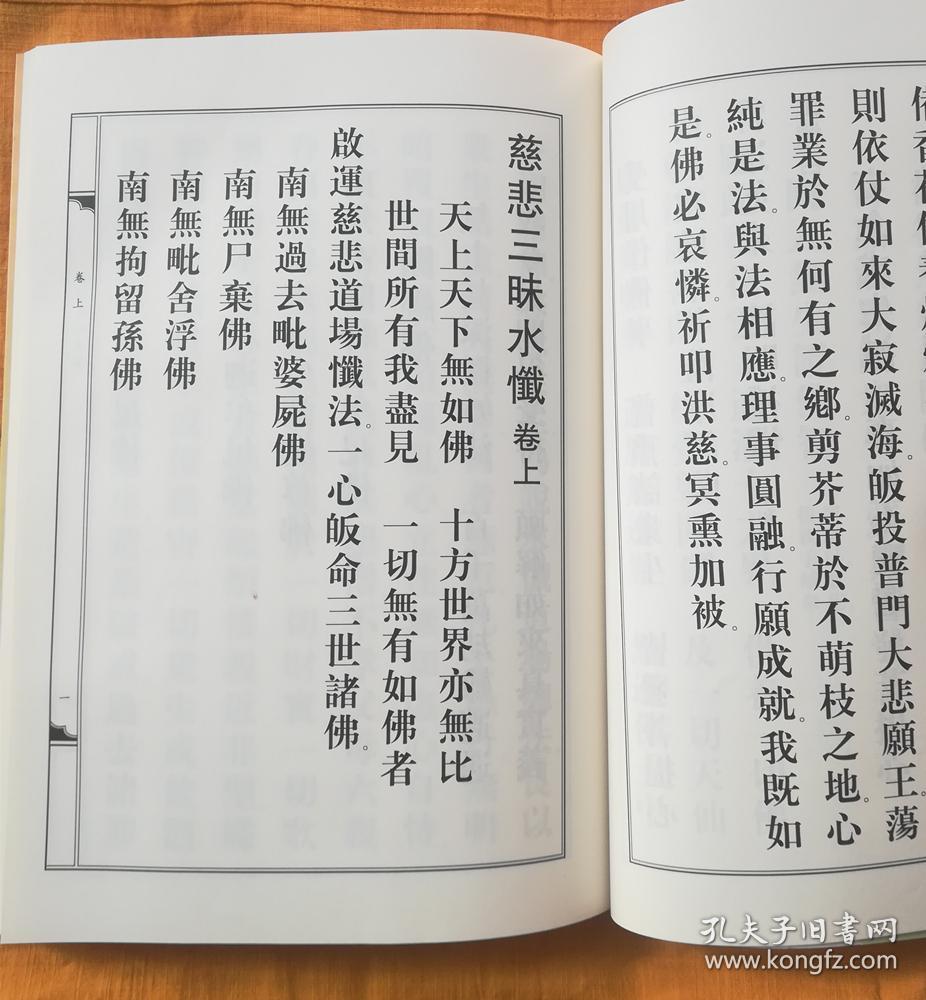 則依仗如來大寂滅海。皈投普門大悲願王。蕩
罪業於無何有之鄉。剪芥蒂於不萌枝之地。心
純是法。與法相應。理事圓融。行願成就。我既如
是。佛必哀憐。祈叩洪慈。冥熏加被。
慈悲三昧水懺 卷上
天上天下無如佛 十方世界亦無比
世間所有我盡見 一切無有如佛者
啟運慈悲道場懺法。一心皈命三世諸佛。
南無過去毗婆屍佛
南無尸棄佛
南無毗舍浮佛
南無拘留孫佛
卷上
一
孔夫子旧书网
www.kongfz.com